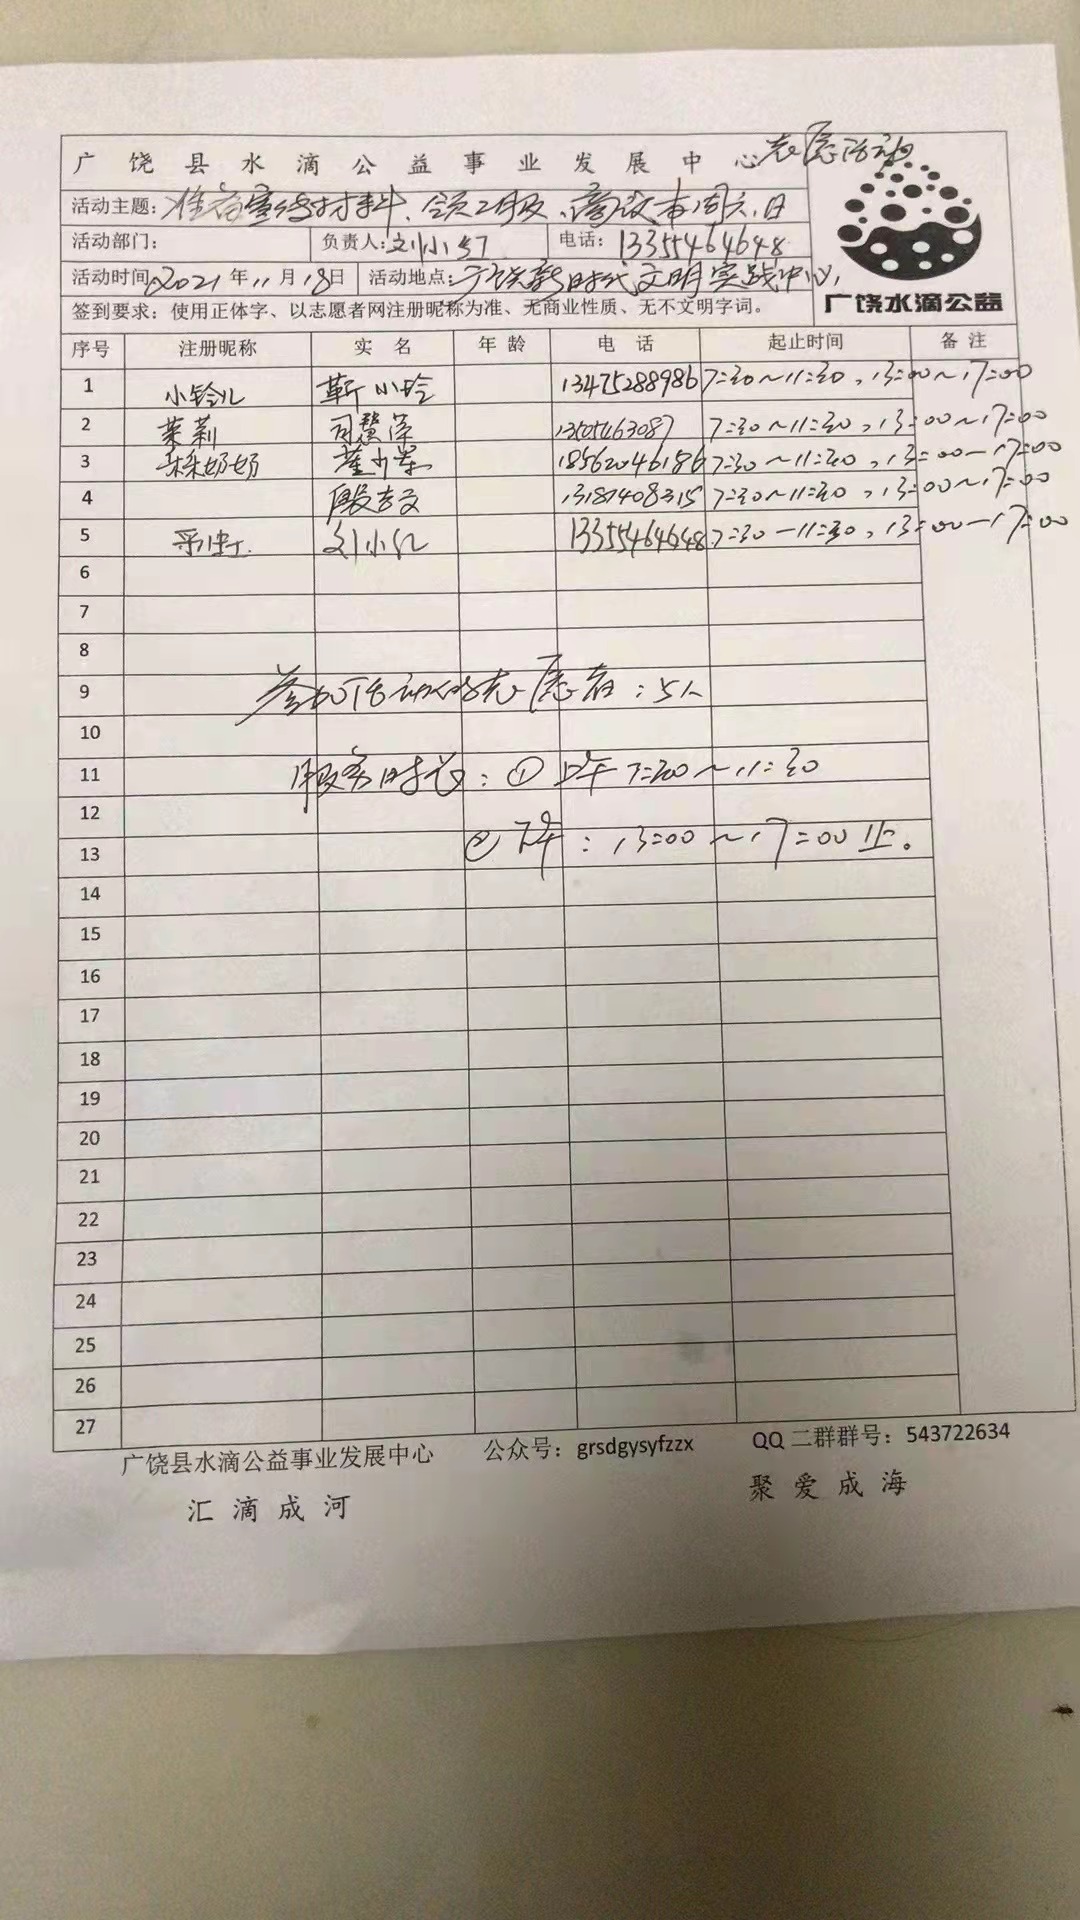 广饶县水滴公益事业发展中心志愿活动
活动主题：准备宣传材料、领工服、商议本周六、日
活动部门： 负责人：刘小红 电话：13355464648
活动时间：2021年11月18日 活动地点：广饶新时代文明实践中心
签到要求：使用正体字、以志愿者网注册昵称为准、无商业性质、无不文明字词。
广饶水滴公益
序号 注册昵称 实名 年龄 电话 起止时间 备注
1 小铃儿 靳小玲 13475288986 7:30～11:30，13:00～17:00
2 茉莉 司慧萍 13505463087 7:30～11:30，13:00～17:00
3 奶奶 董 18562046186 7:30～11:30，13:00—17:00
4 殷 13187408315 7:30～11:30，13:00～17:00
5 彩虹 刘小红 13355464648 7:30—11:30，13:00—17:00
6
7
8
9 参加活动的志愿者：5人
10
11 服务时长：① 上午7:30～11:30
12
13 ② 下午：13:00～17:00止。
14
15
16
17
18
19
20
21
22
23
24
25
26
27
广饶县水滴公益事业发展中心 公众号：grsdgysyfzzx QQ二群群号：543722634
汇滴成河 聚爱成海